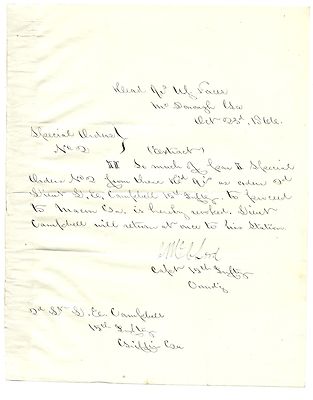 Head Qrs U.S. Forces
McDonough Ga
Oct 23d, 1866.
Special Orders
No 2. Extract
II So much of Par II Special
Orders No 2 from these Hd. Qrs as orders 2d
Lieut D. E. Campbell 15th Infty, to proceed
to Macon Ga, is hereby revoked. Lieut
Campbell will return at once to his Station.
Capt 15th Infty
Comdg
2d Lt D. E. Campbell
15th Infty
Griffin Ga